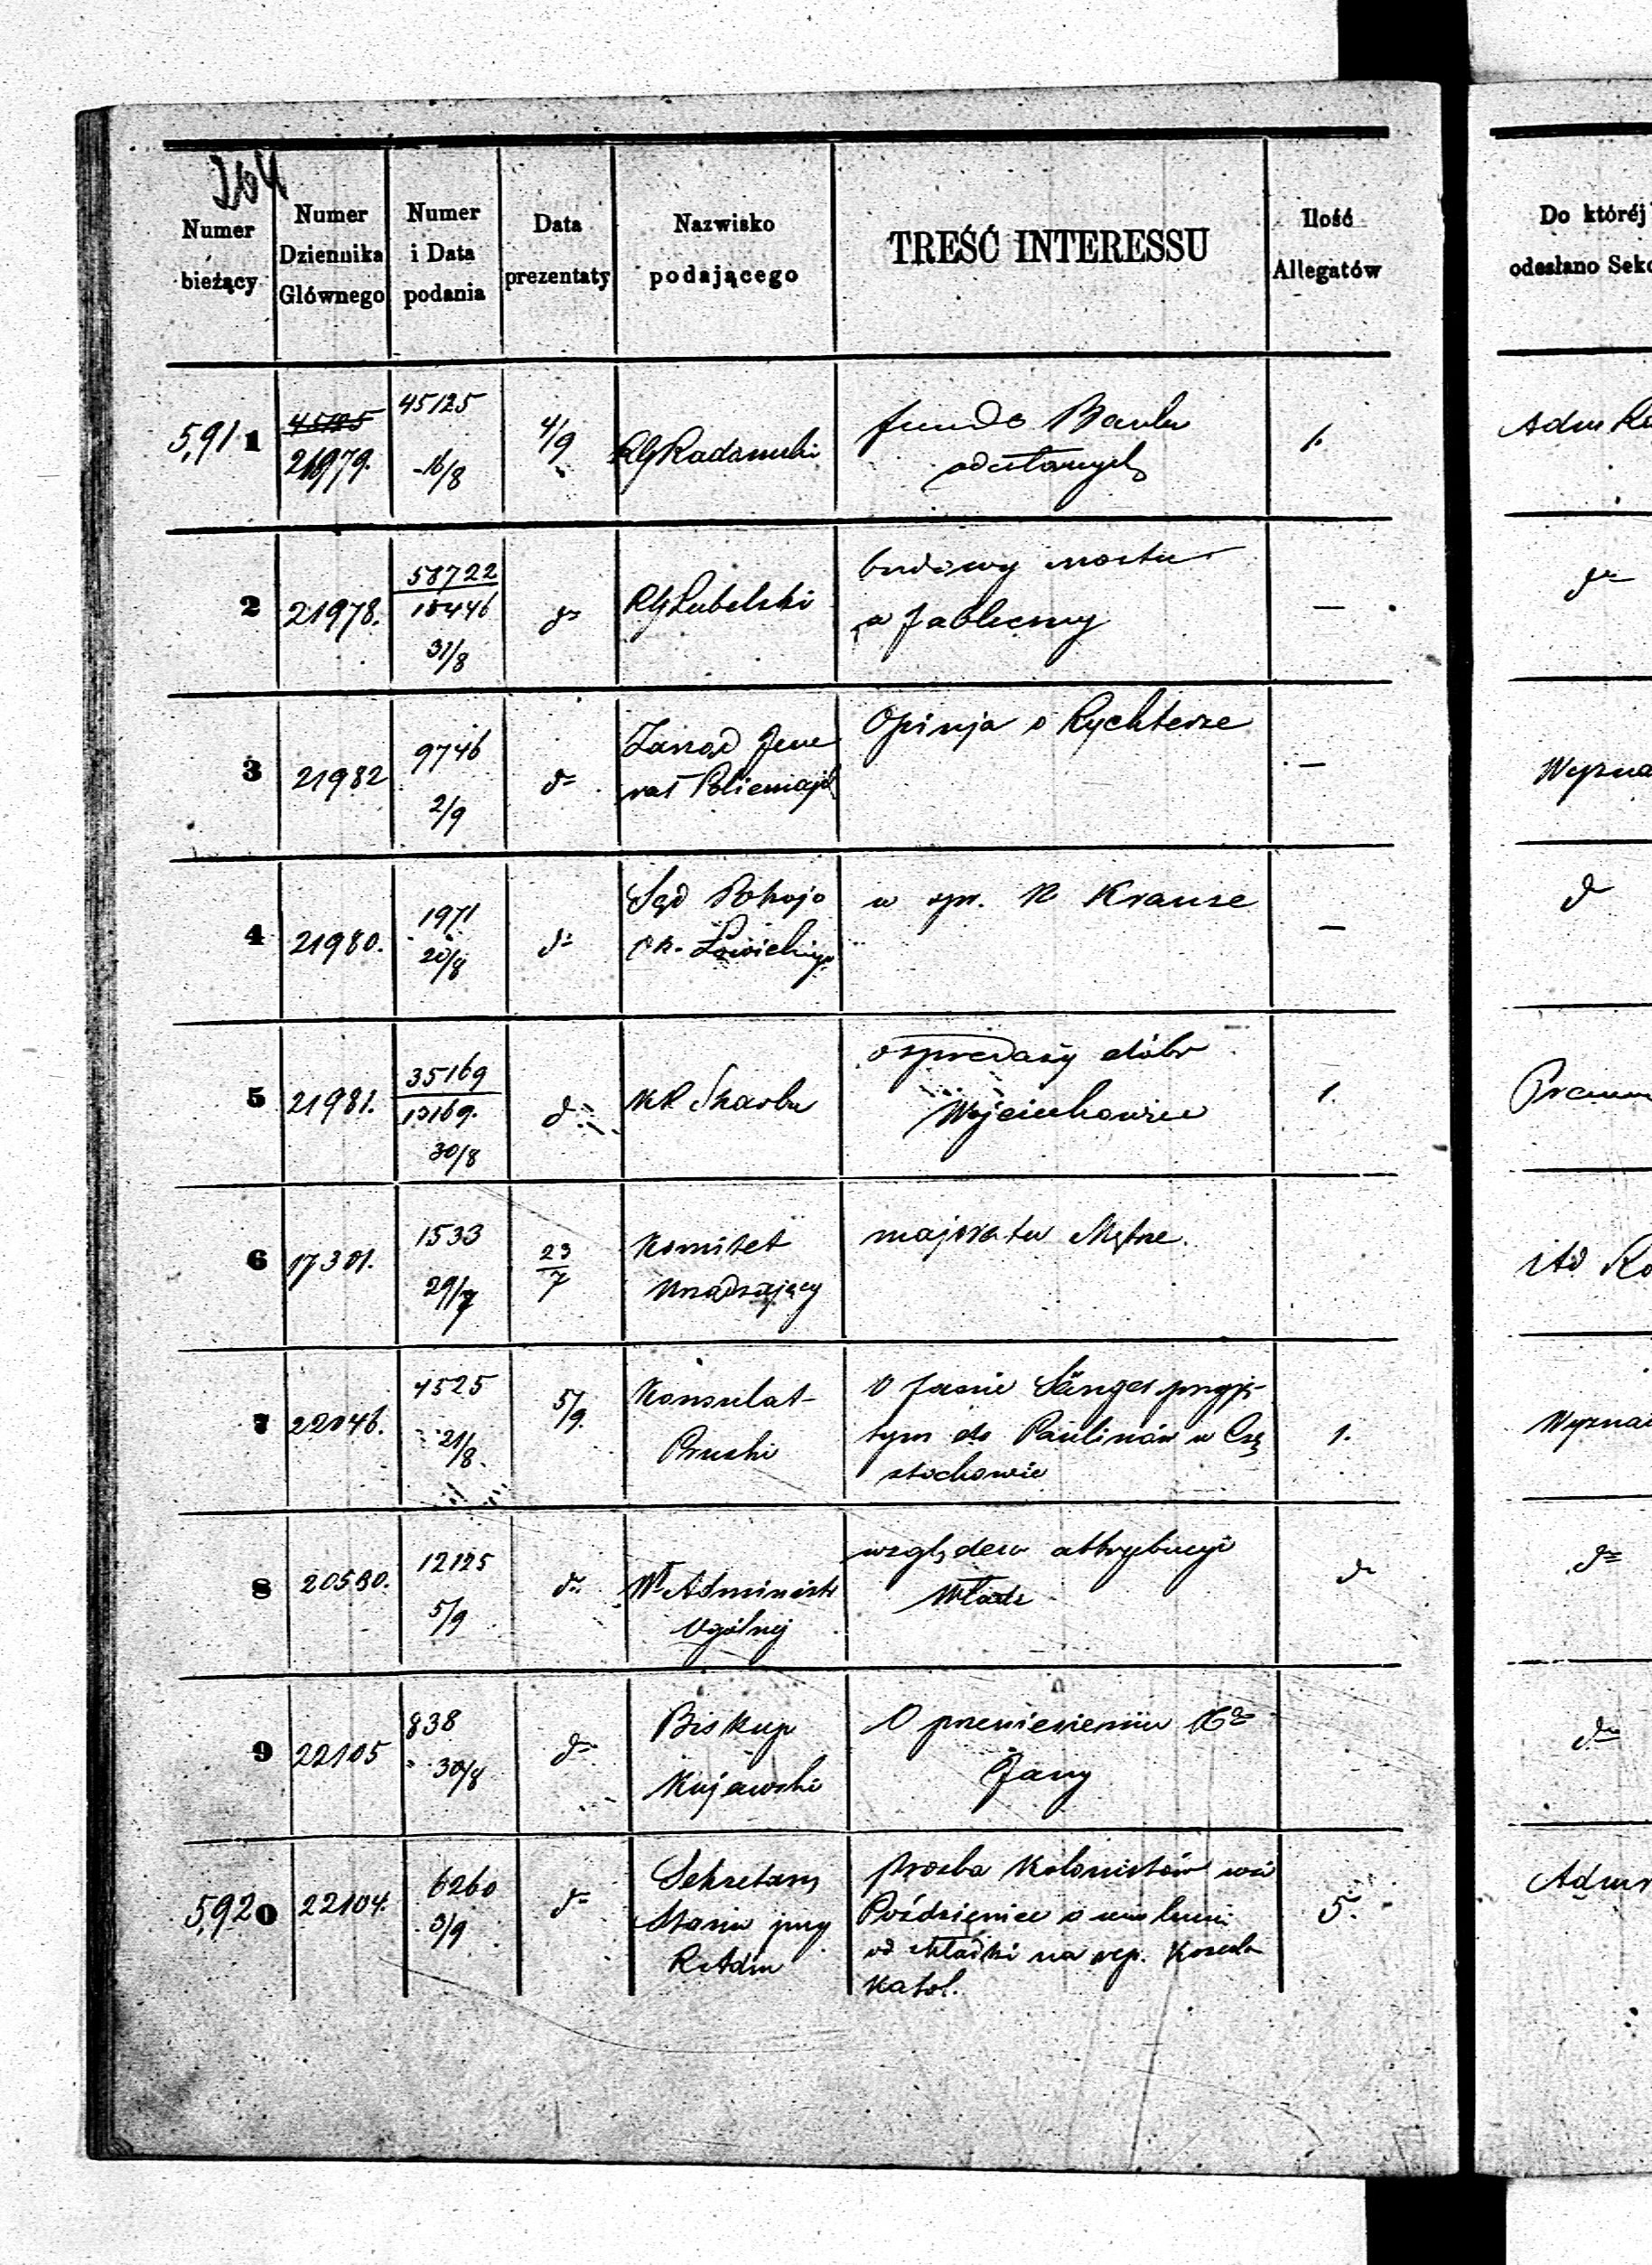 264
Numer bieżący
Numer Dziennika Głównego
Numer i Data podania
Data prezentaty
Nazwisko podającego
TREŚĆ INTERESSU
Ilość Allegatów
Do któréj odesłano Sek
5,911
45125
21979.
45125
16/8
4/9
RG Radomski
1.
Adm
2
21978.
58722
15446
31/8
dº
RG Lubelski
budowy mostu
w Jabłecznej
—
dº
3
21982
9746
2/9
dº
Zarząd Jene
rał Policmajst
Opinja o Rychterze
—
Wyzna
4
21980.
1971
20/8
dº
Sąd Pokoju
Ok. Łowickiego
w spr. K Krause
—
d
5
21981.
35169
13169.
30/8
d
KR Skarbu
o sprzedaży dóbr
Wojciechowice
1.
6
17301.
1533
29/7
23/7
Komitet
Urządzający
majoratu Mętne.
7
22046.
4525
21/8.
5/9.
Konsulat
Pruski
O Janie Sänger przyję-
tym do Paulinów w Czę
stochowie
1.
Wyzna
8
20580.
12125
5/9
dº
Wł Administr
Ogólnej
względem attrybucyi
Władz
dº
dº
9
22105
838
30/8
dº
Biskup
Kujawski
O przeniesieniu Xdza
Jany
dº
5,920
22104.
6260
3/9
dº
Sekretarz
Stanu przy
RAdm
prośba Kolonistów wsi
Poździenice o uwolnien
od składki na rep. Kościoła
Katol.
5.
Adm